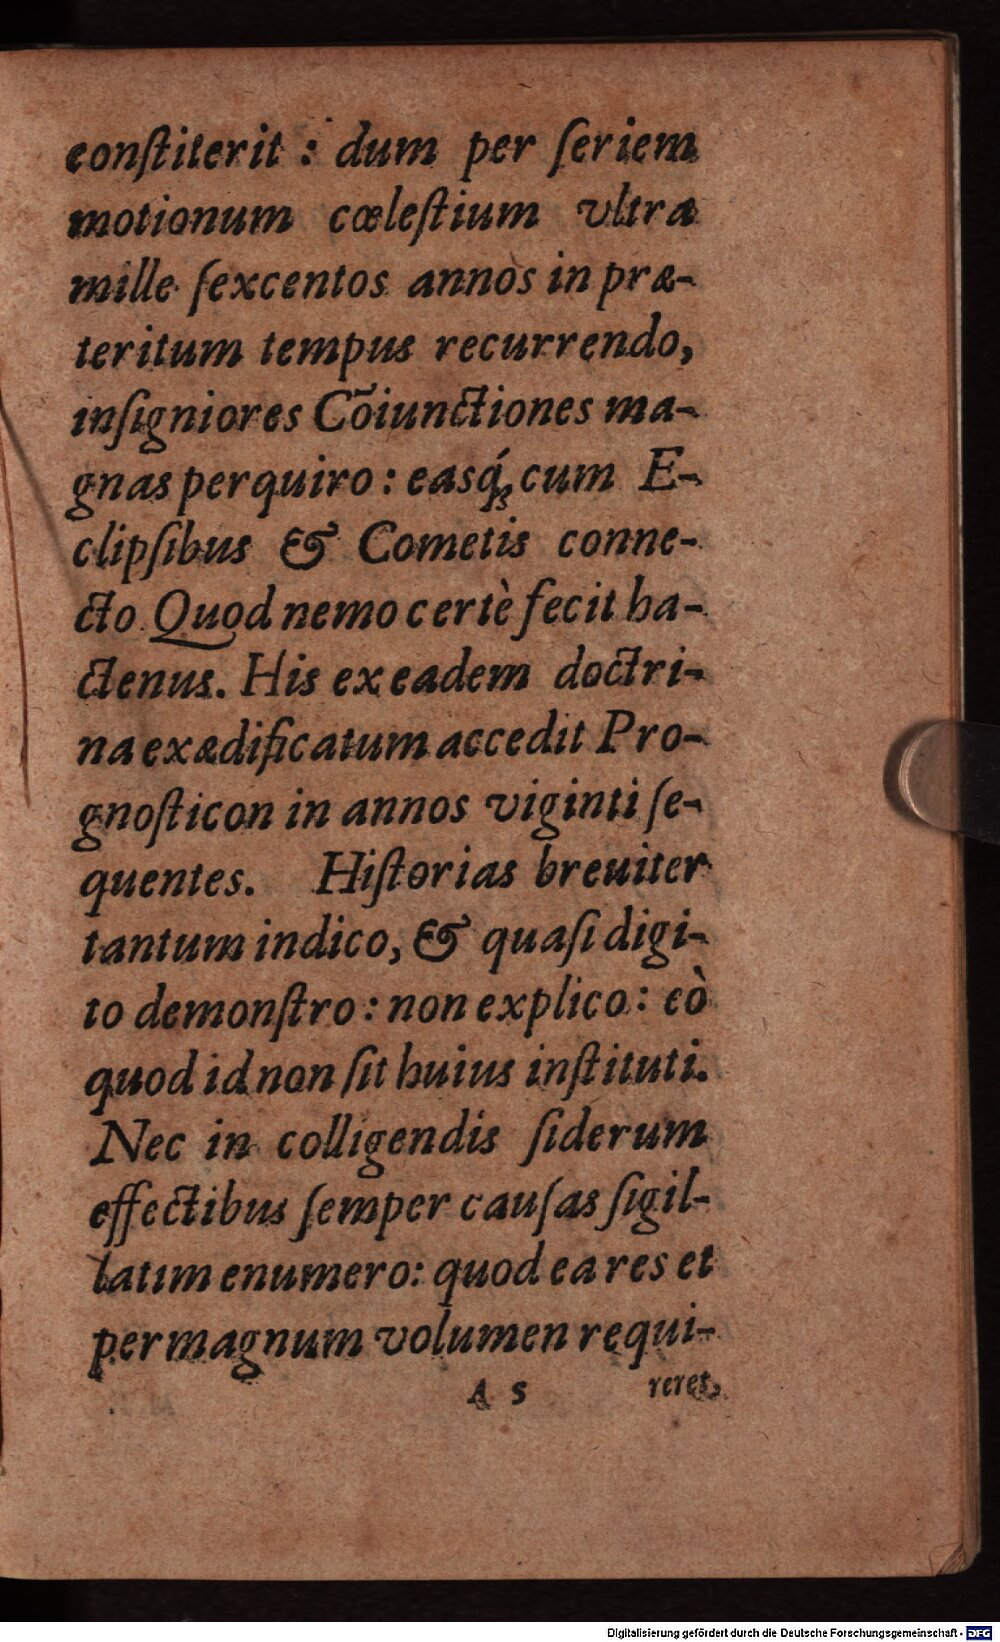 conſtiterit : dum per ſeriem
motionum cœleſtium vltra
mille ſexcentos annos in præ-
teritum tempus recurrendo,
inſigniores Cõiunctiones ma-
gnas perquiro : easq́; cum E-
clipſibus & Cometis conne-
cto Quod nemo certè fecit ha-
ctenus. His ex eadem doctri-
na exædificatum accedit Pro-
gnoſticon in annos viginti ſe-
quentes. Hiſtorias breuiter
tantum indico, & quaſi digi-
to demonſtro : non explico : eò
quod id non ſit huius inſtituti.
Nec in colligendis ſiderum
effectibus ſemper cauſas ſigil-
latim enumero: quod ea res et
permagnum volumen requi-
A 5 reret,
Digitalisierung gefördert durch die Deutsche Forschungsgemeinschaft - DFG